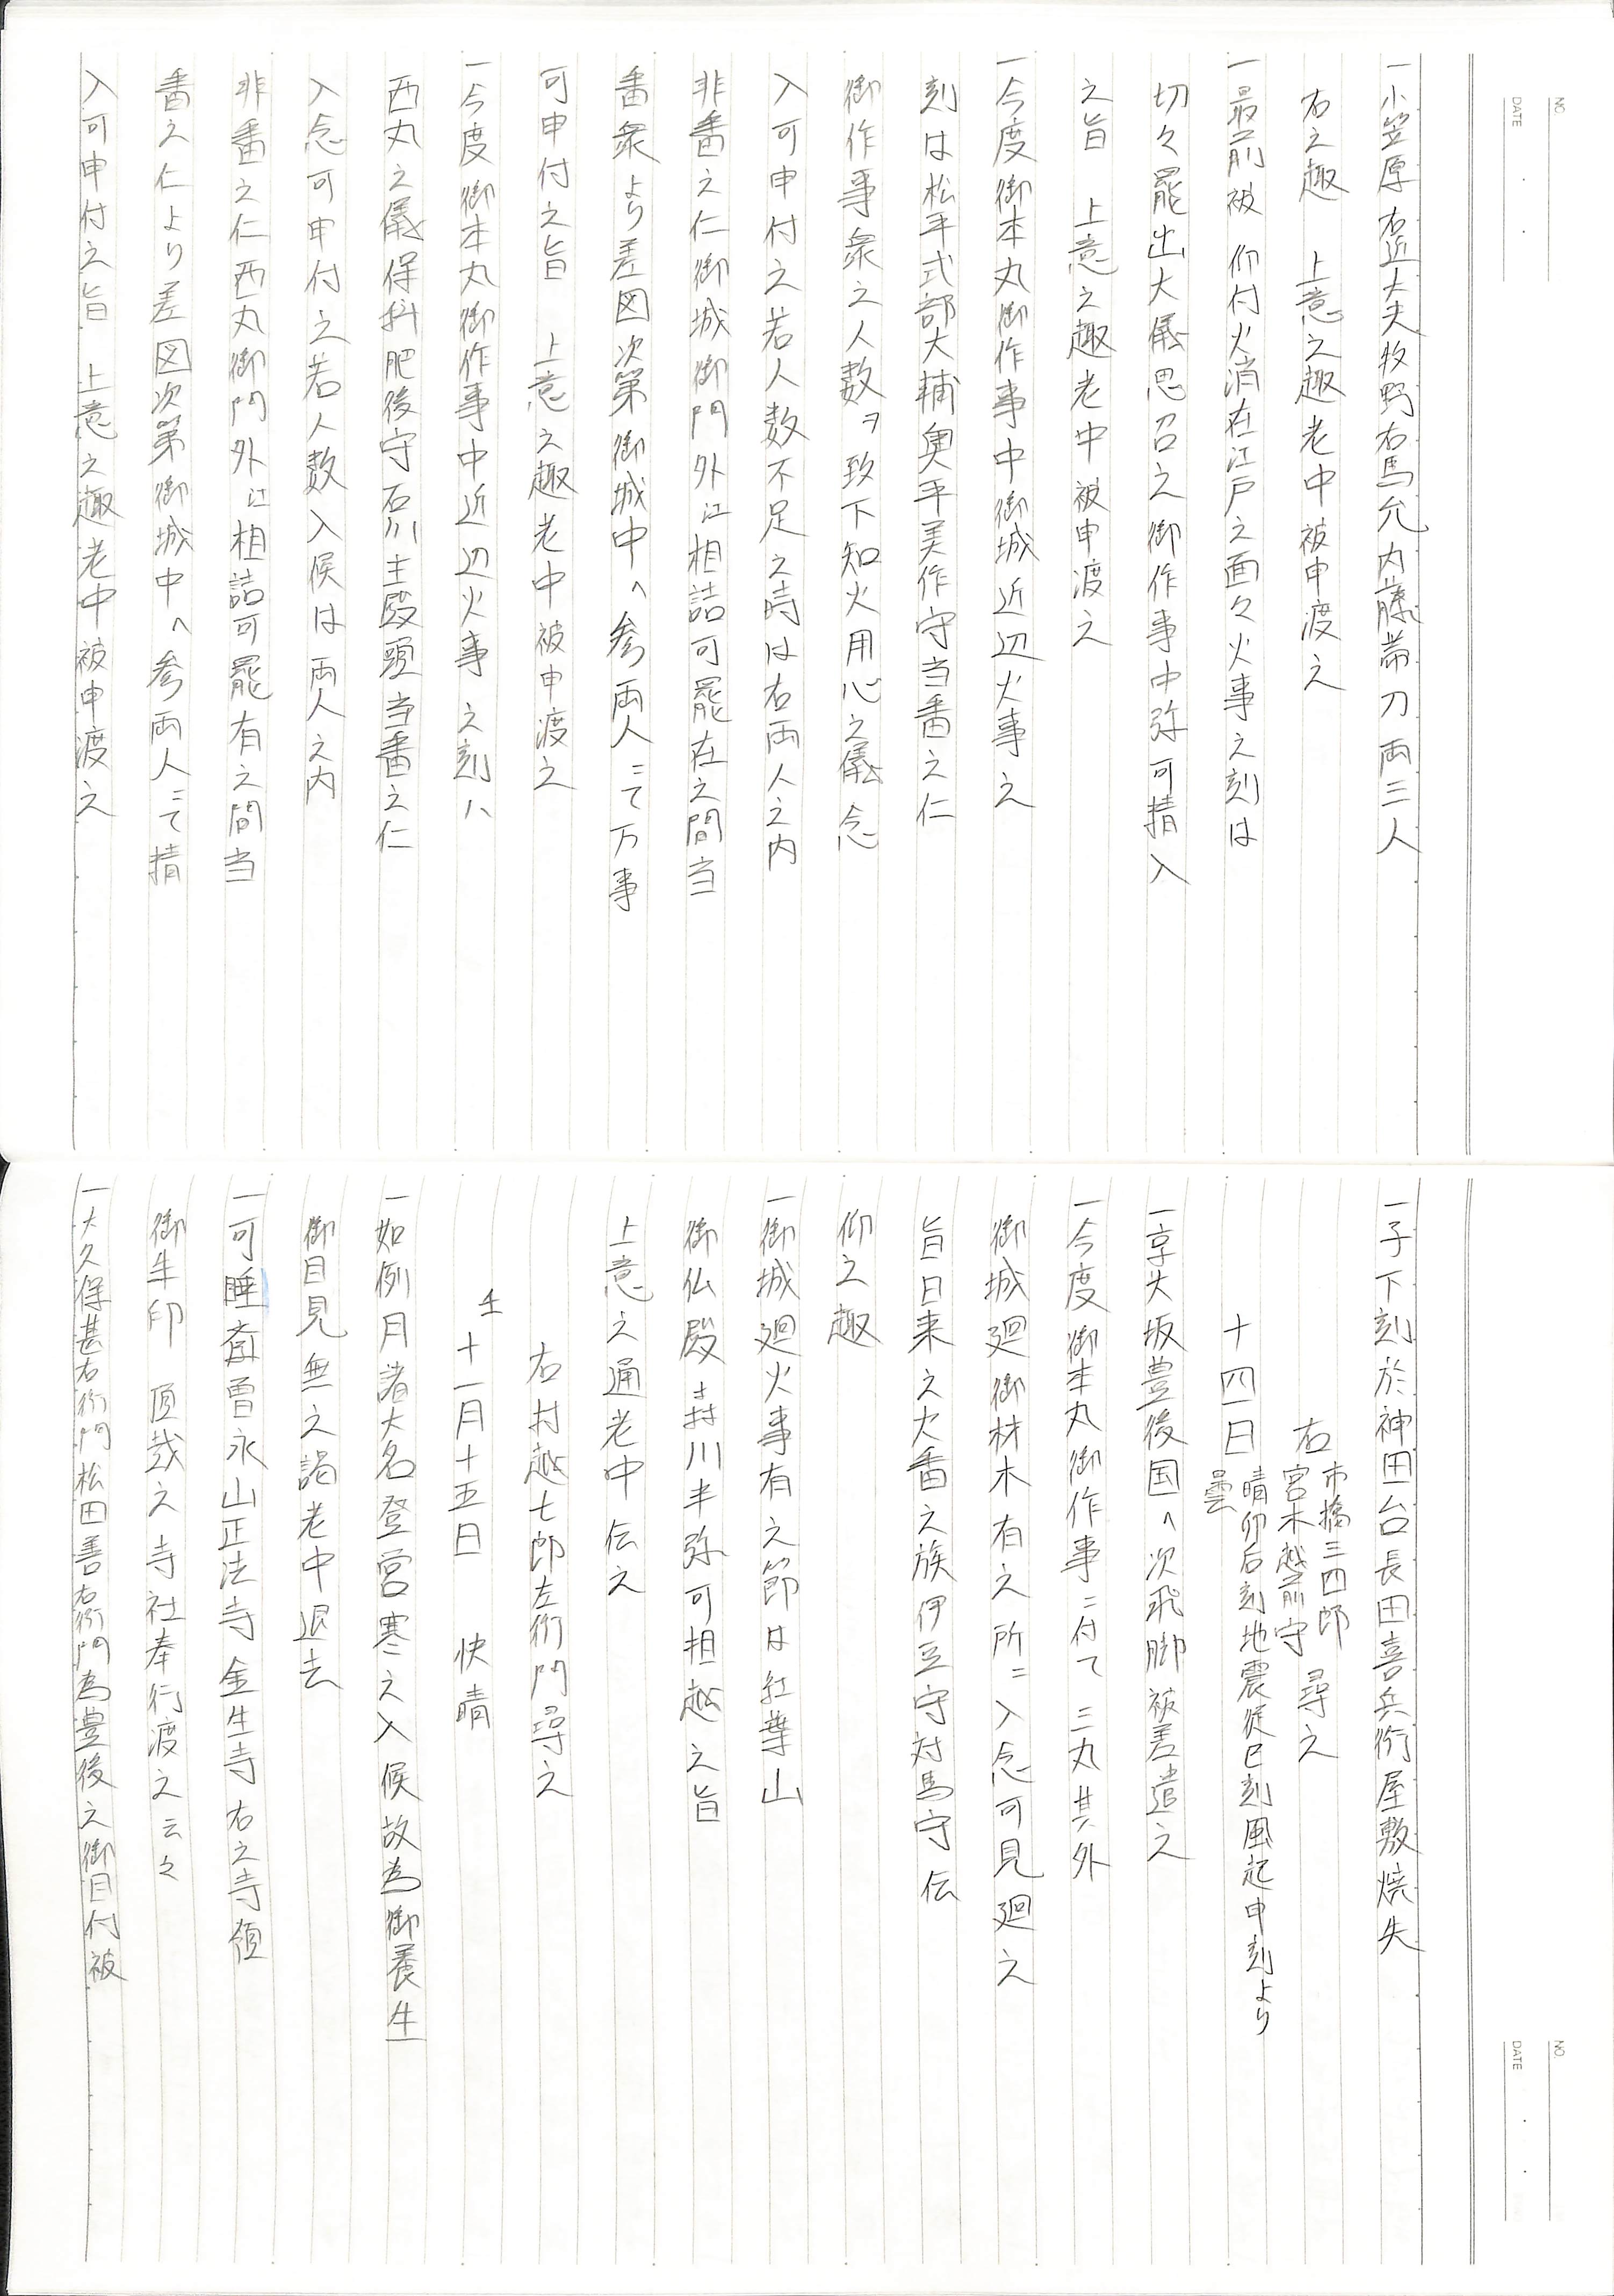 NO
DATE
一小笠原右近大夫牧野右馬允内藤帯刀両三人
右之趣　上意之趣老中被申渡之
一最前被　仰付火消在江戸之面々火事之刻は
切々罷出大儀思召之御作事中弥可精入
之旨　上意之趣老中被申渡之
一今度御本丸御作事中御城近辺火事之
刻は松平式部大輔奥平美作守当番之仁
御作事衆之人数ヲ致下知火用心之儀念
入可申付之若人数不足之時は右両人之内
非番之仁御城御門外江相詰可罷在之間当
番衆より差図次第御城中へ参両人ニて万事
可申付之旨　上意之趣老中被申渡之
一今度御本丸御作事中近辺火事之刻ハ
西丸之儀保科肥後守石川主殿頭当番之仁
入念可申付之若人数入候は両人之内
非番之仁西丸御門外江相詰可罷有之間当
番之仁より差図次第御城中へ参両人ニて精
入可申付之旨　上意之趣老中被申渡之
NO
DATE
一子下刻於神田台長田喜兵衛屋敷焼失
右 市橋三四郎
宮木越前守　尋之
十四日 晴卯后刻地震従巳刻風起申刻より
曇
一京大坂豊後国へ次飛脚被差遣之
一今度御本丸御作事ニ付て三丸其外
御城廻御材木有之所ニ入念可見廻之
旨日来之大番之族伊豆守対馬守伝
仰之趣
一御城廻火事有之節は紅葉山
御仏殿森川半弥可相越之旨
上意之通老中伝之
右村越七郎左衛門尋之
壬
十一月十五日　快晴
一如例月諸大名登営寒之入候故為御養生
御目見無之謁老中退去
一可睡斎曽永山正法寺金生寺右之寺領
御朱印　頂戴之寺社奉行渡之云々
一大久保甚右衛門松田善右衛門為豊後之御目付被